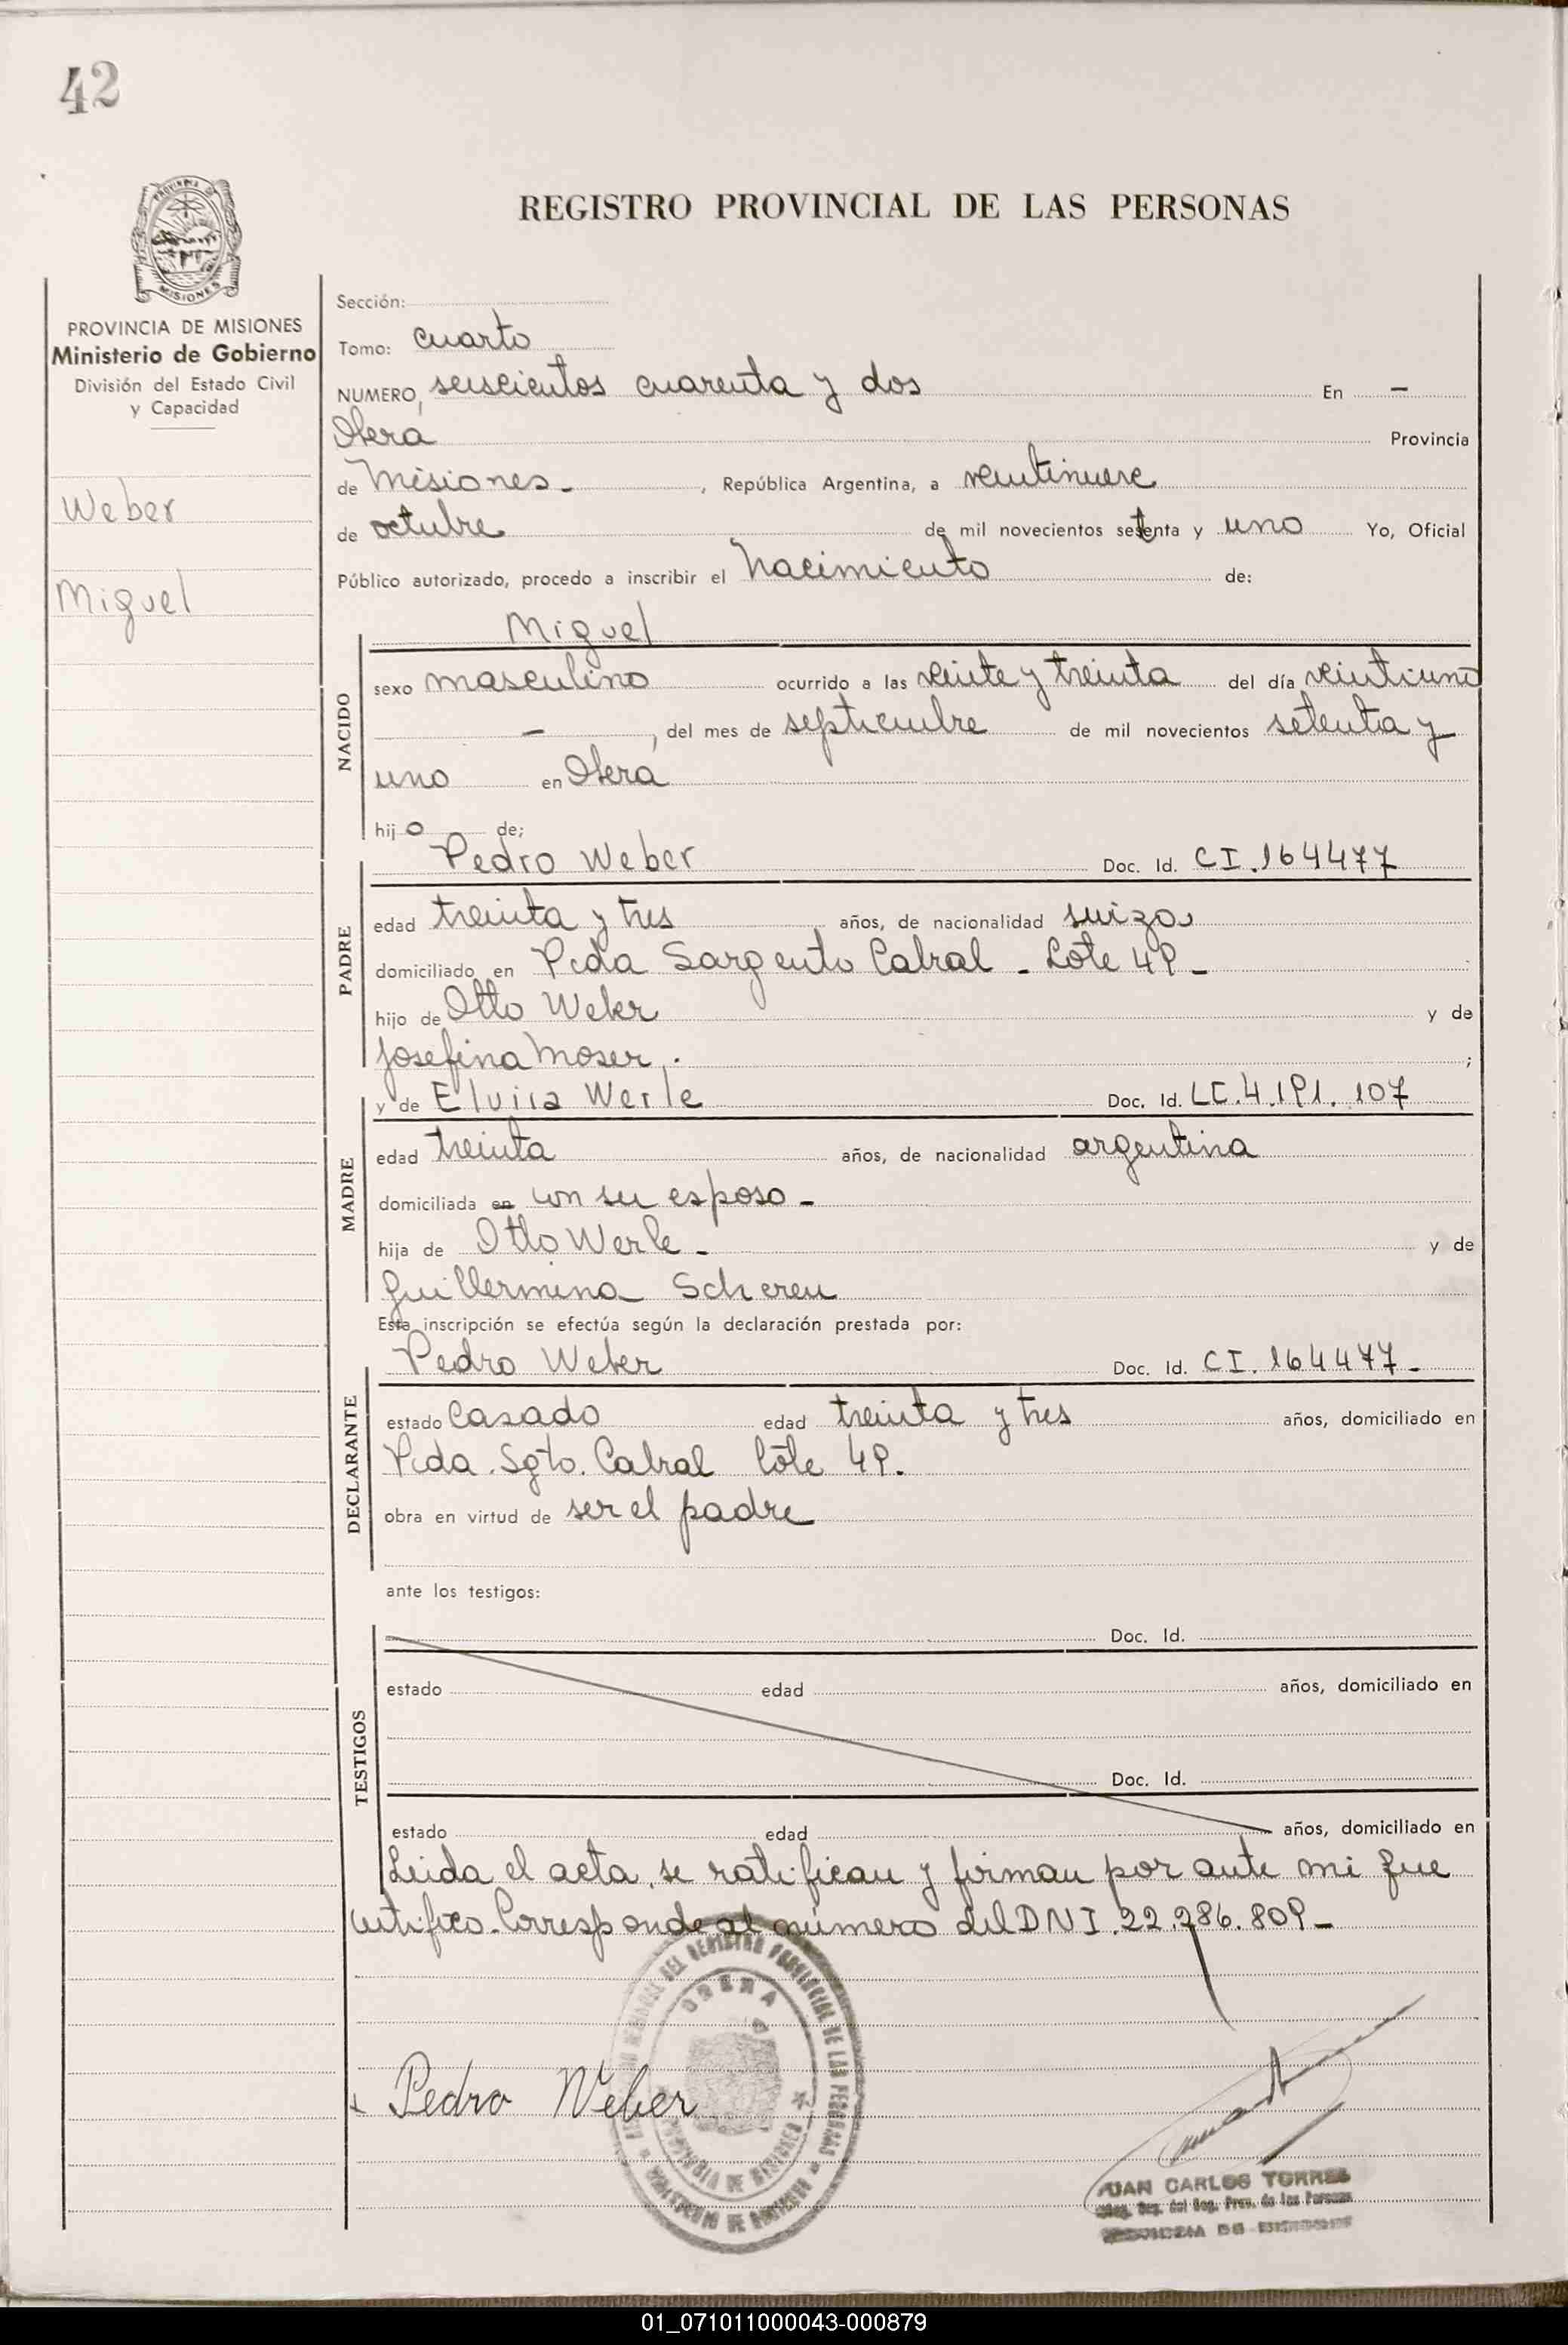 42
REGISTRO PROVINCIAL DE LAS PERSONAS
MISIONES
PROVINCIA DE MISIONES
Ministerio de Gobierno
División del Estado Civil
y Capacidad
Weber
Miguel
Sección:
Tomo: cuarto
NUMERO, seiscientos cuarenta y dos En —
Obera Provincia
de Misiones - , República Argentina, a veintinueve
de octubre de mil novecientos setenta y uno Yo, Oficial
Público autorizado, procedo a inscribir el Nacimiento de:
NACIDO
Miguel
sexo masculino ocurrido a las veinte y treinta del día veintiuno
— , del mes de septiembre de mil novecientos setenta y
uno en Obera
hijo de;
PADRE
Pedro Weber Doc. Id. CI.164477
edad treinta y tres años, de nacionalidad suizo
domiciliado en Pcda Sargento Cabral - Lote 49 -
hijo de Otto Weber y de
Josefina Moser . ;
y de Elvira Werle Doc. Id. LC.4.191.107
MADRE
edad treinta años, de nacionalidad argentina
domiciliada en con su esposo -
hija de Otto Werle - y de
Guillermina Schereu
Esta inscripción se efectúa según la declaración prestada por:
Pedro Weber Doc. Id. CI. 164477 -
DECLARANTE
estado Casado edad treinta y tres años, domiciliado en
Pcda. Sgto. Cabral lote 49.
obra en virtud de ser el padre
ante los testigos:
TESTIGOS
Doc. Id.
estado edad años, domiciliado en
Doc. Id.
estado edad años, domiciliado en
Leida el acta, se ratifican y firman por ante mi que
certifico. Corresponde al número del DNI.22.286.809 -
DEL REGISTRO PROVINCIAL DE LAS PERSONAS
OBERA
PROVINCIA DE MISIONES
Pedro Weber
JUAN CARLOS TORRES
del Reg. Prov. de las Personas
PROVINCIA DE MISIONES
01_071011000043-000879